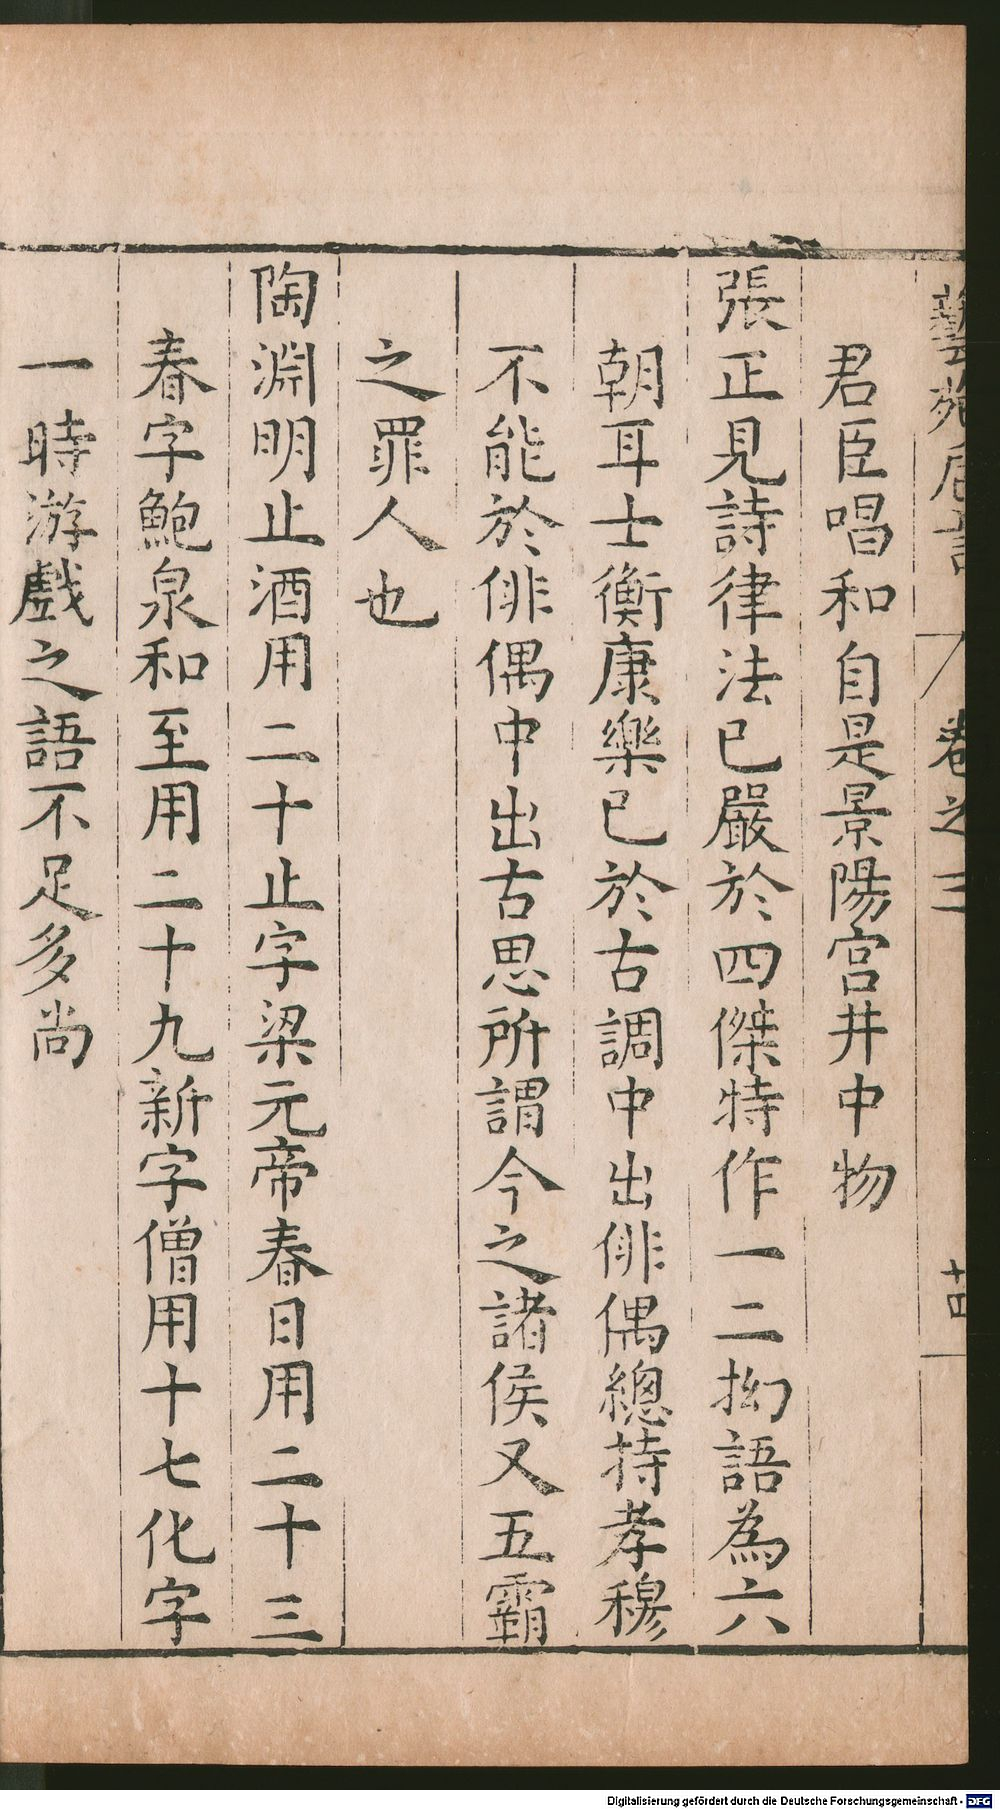 藝苑卮言
卷之三
十四
君臣唱和自是景陽宮井中物
張正見詩律法已嚴於四傑特作一二拗語為六
朝耳士衡康樂已於古調中出俳偶總持孝穆
不能於俳偶中出古思所謂今之諸侯又五霸
之罪人也
陶淵明止酒用二十止字梁元帝春日用二十三
春字鮑泉和至用二十九新字僧用十七化字
一時游戲之語不足多尚
Digitalisierung gefördert durch die Deutsche Forschungsgemeinschaft - DFG